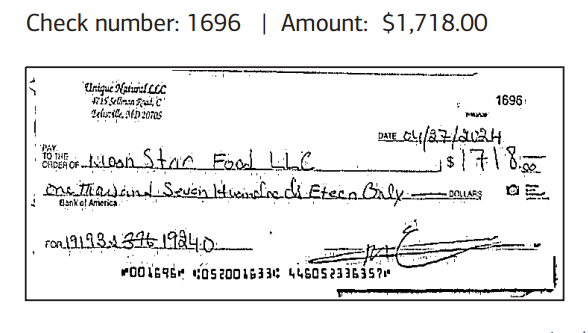 Check number: 1696 | Amount: $1,718.00
Unique Natural LLC
4715 Sellman Road, C
Beltsville, MD 20705
1696
DATE 04/27/2024
PAY TO THE ORDER OF Moon Star Food LLC $ 1718.00
One Thousand Seven Hundred Eteen Only DOLLARS
Bank of America
FOR 19193 19240
⑈001696⑈ ⑆052001633⑆ 446052336357⑈